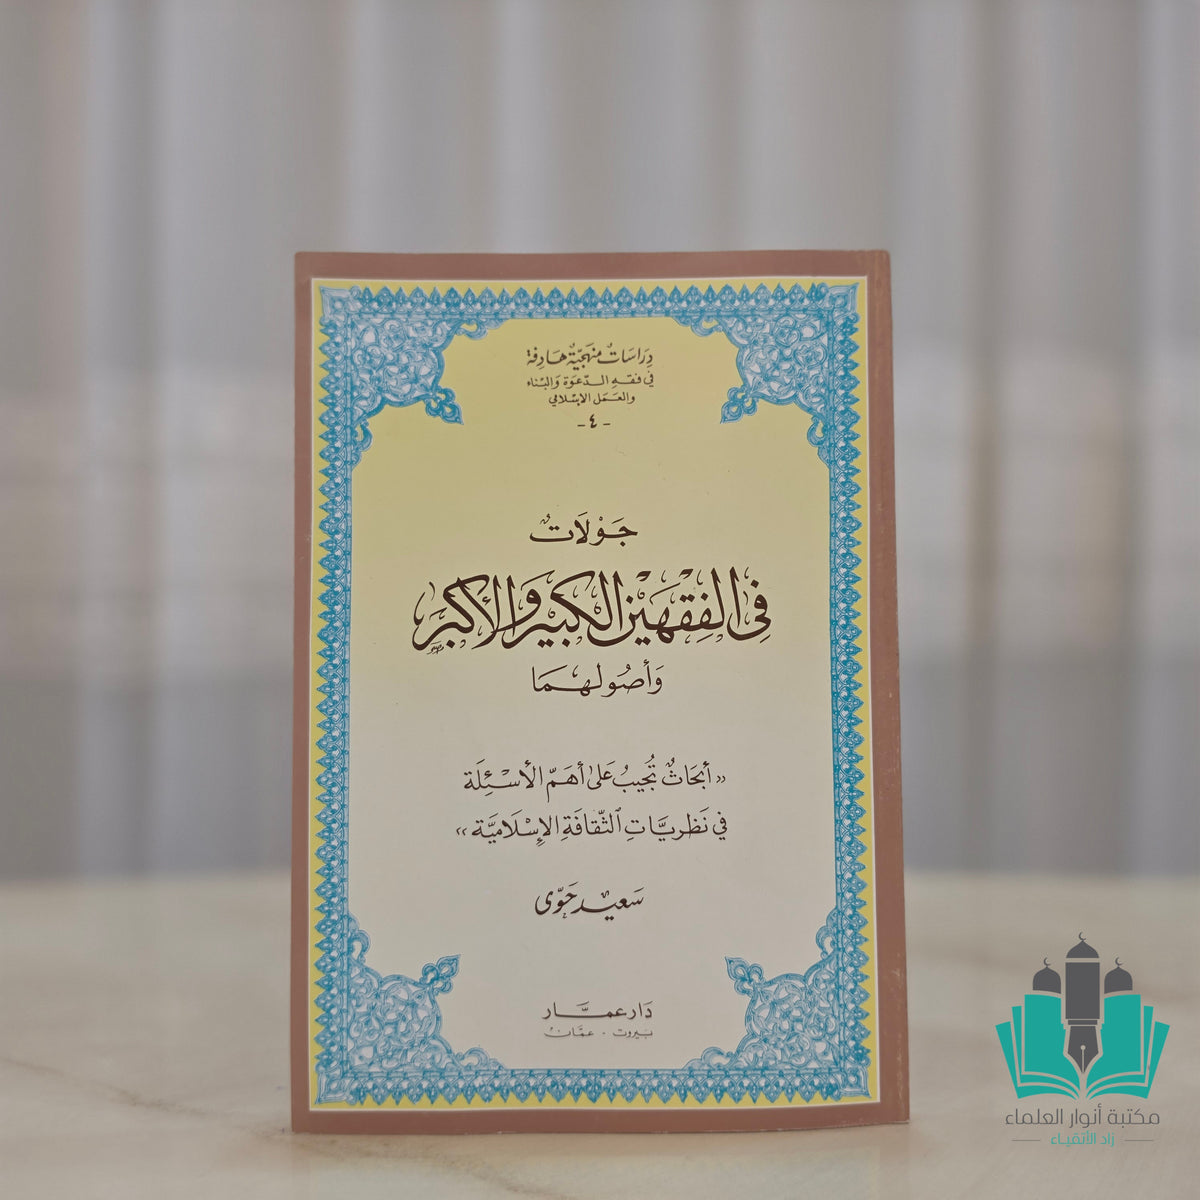 دِرَاسَاتٌ مَنهَجيّةٌ هَادِفَة
في فقهِ الدّعوَة وَالبْناء
والعمَل الإسْلامي
- ٤ -
جَوْلَاتٌ
فِي الفِقْهَيْنِ الكَبِيرِ وَالأكبَرِ
وَأصُولهمَا
«أبحَاثٌ تُجيبُ عَلى أهَمّ الأسْئِلَة
في نَظريَّاتِ الثّقافَةِ الإسْلَاميَّة»
سَعيد حَوّى
دَار عمَّار
بيروت - عمَّان
مكتبة أنوار العلماء
زاد الأتقياء